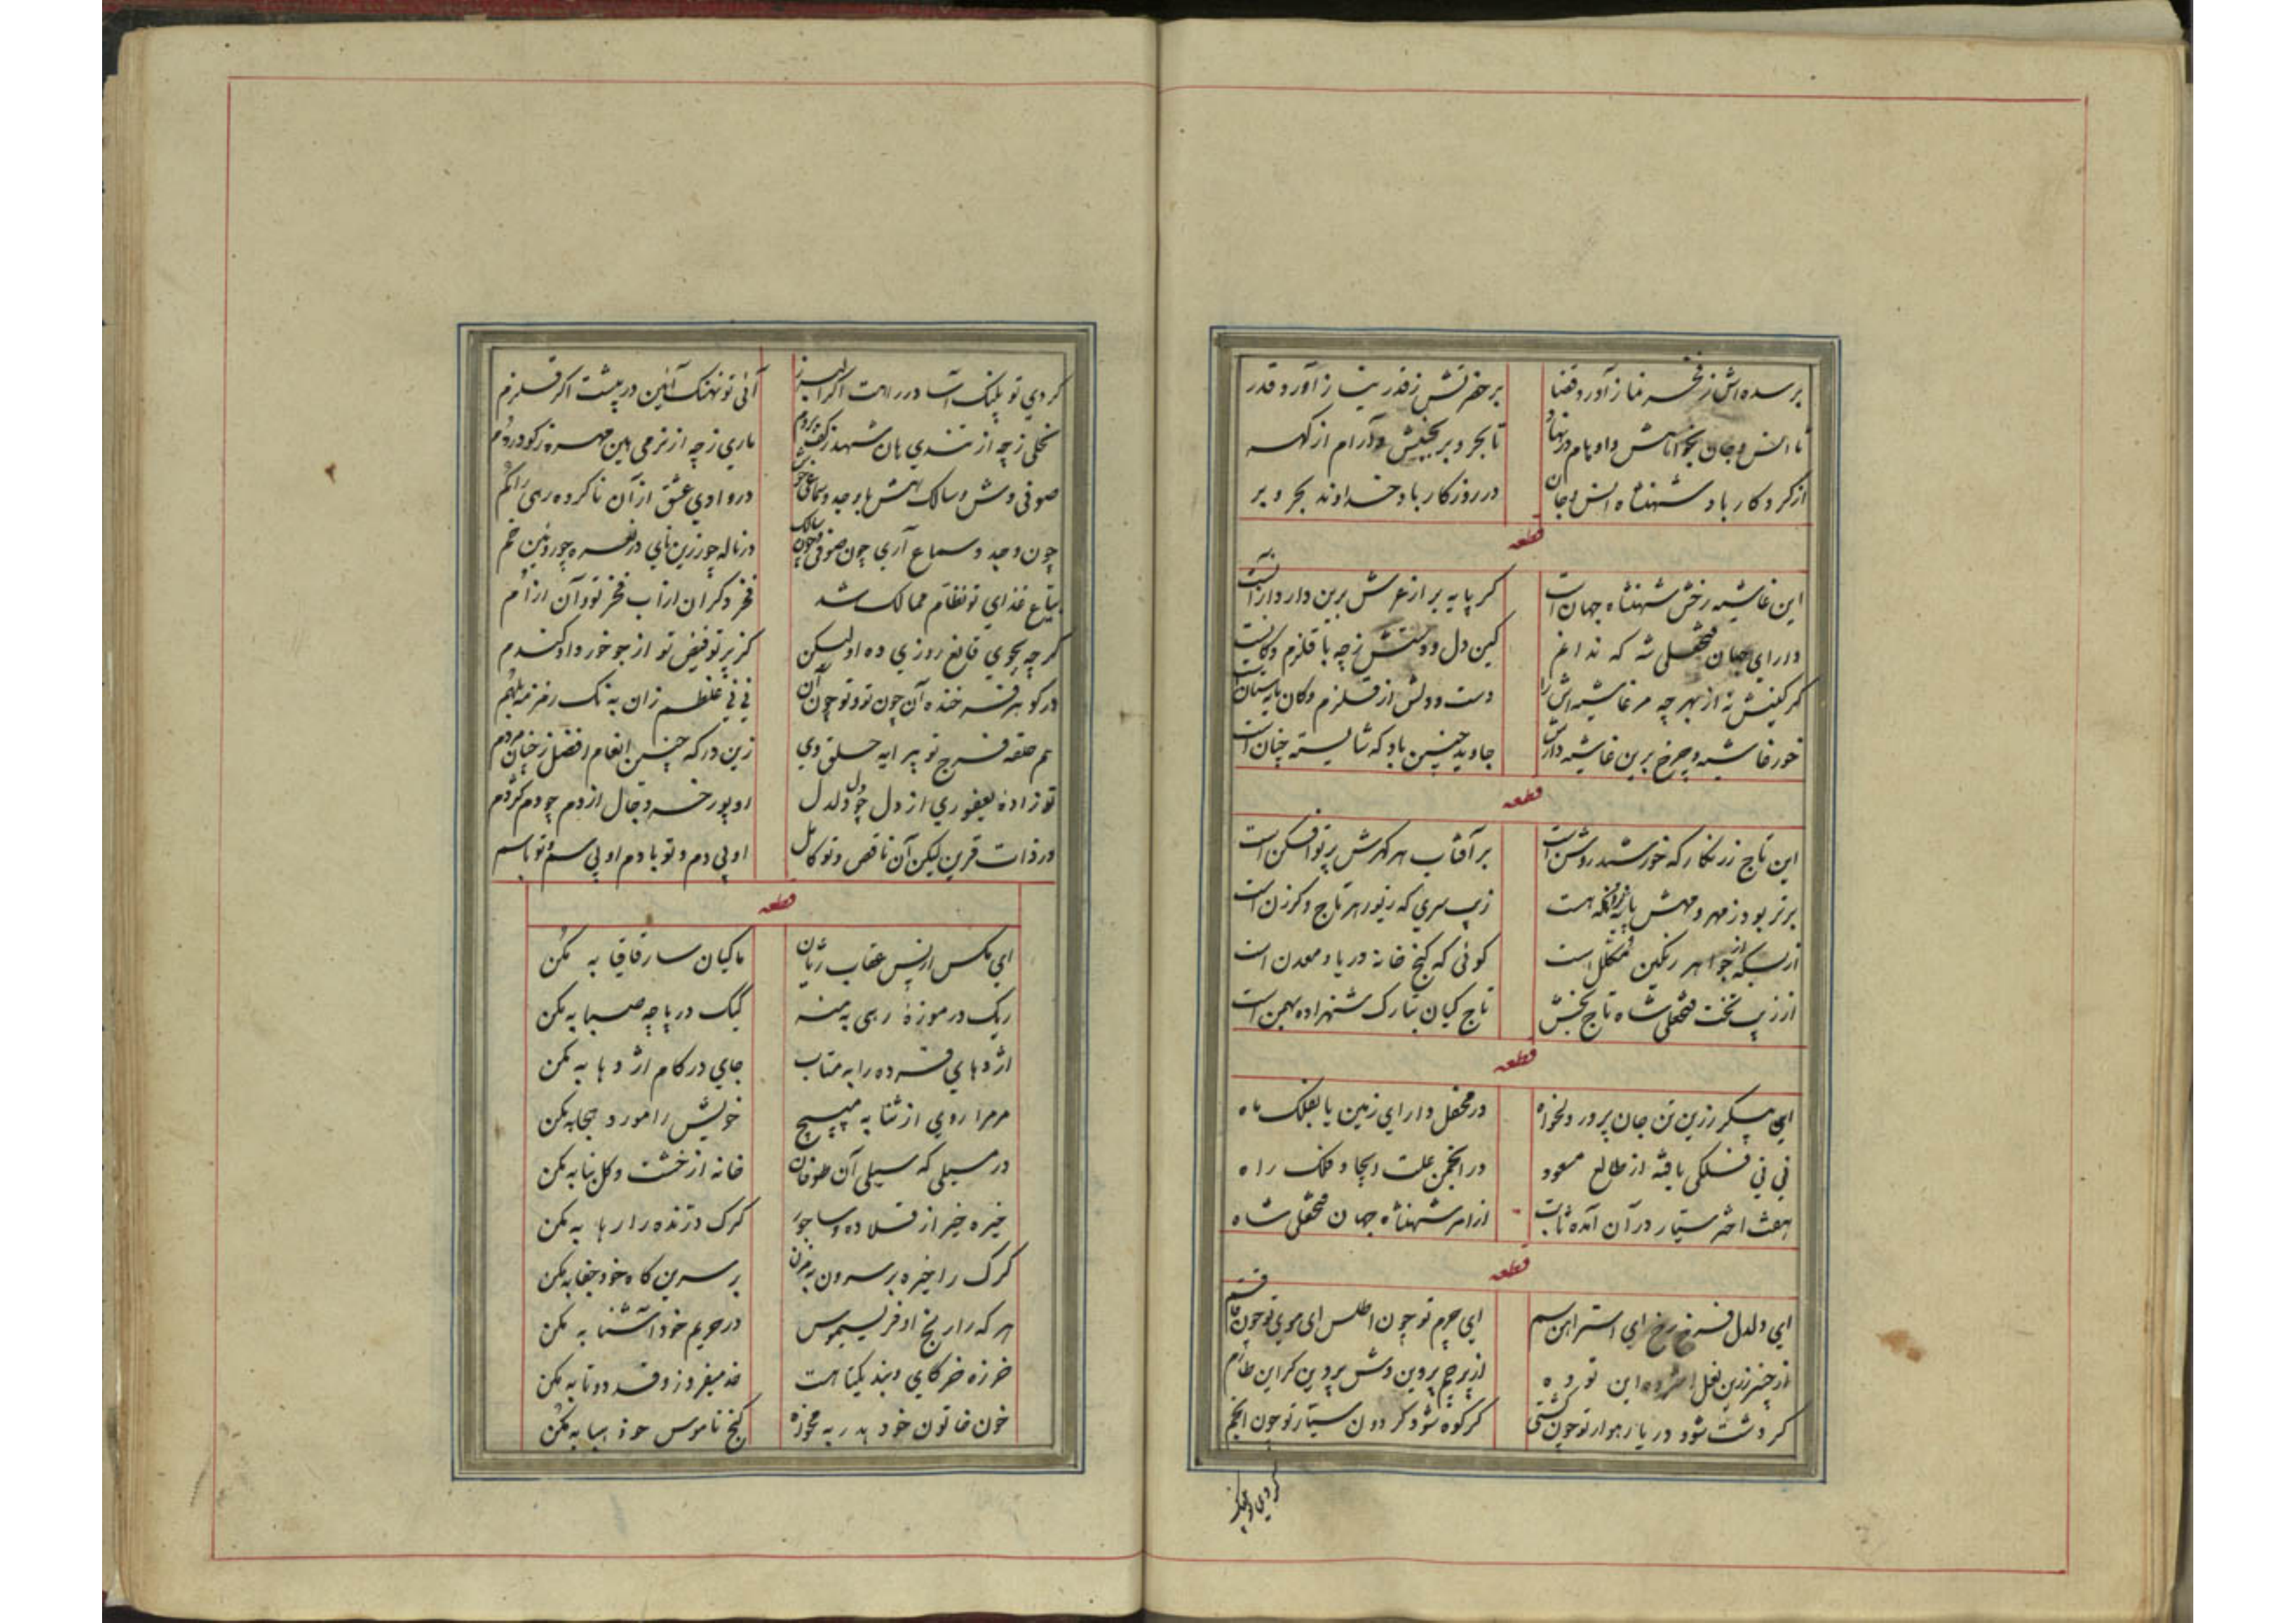 بر سده اش ز فخر نماز آورد قضا بر حضرتش ز قدر نیاز آورد قدر
تا انس و جان بخواهش و اوهام در نهاد تا بحر و بر بجنبش و آرام از گهر
از کردگار باد شهنشاه انس و جان در روزگار باد خداوند بحر و بر
قطعه
این غاشیه رخش شهنشاه جهان است کز پایه بر از عرش برین دار و از آنست
دارای جهان فتحعلی شه که ندانم کین دل و دستش ز چه با قلزم و کانست
گر کینش نه از بهر چه مر غاشیه اش را دست و دلش از قلزم و کان مایه ستانست
خور غاشیه و چرخ برین غاشیه دارش جاوید چنین باد که شایسته چنان است
قطعه
این تاج زرنگار که خورشید روشن است بر آفتاب هر گهرش پرتو افکن است
برتر بود ز مهر و مهش پایه زانکه هست زیب سری که زیور هر تاج و گرزن است
از بسکه از جواهر رنگین مکلل است گوئی که گنج خانه دریا و معدن است
از زیب تخت فتحعلی شاه تاج بخش تاج کیان بتارک شهزاده بهمن است
قطعه
این پیکر زرین تن جان پرور دلخواه در محفل دارای زمین یا بفلک ماه
نی نی فلکی یافته از طالع مسعود در انجمن علت ایجاد فلک راه
هفت اختر سیار در آن آمده ثابت از امر شهنشاه جهان فتحعلی شاه
قطعه
ای دلدل فرخ رخ ای استر آهن سم ای چرم تو چون اطلس ای موی تو چون قاقم
از چنبر زرین نعل این توده از پرچم پروین وش پروین کز این طارم
گر دشت شود دریا رهوار تو چون کشتی گر کوه شود گردون سیار تو چون انجم
کردی تو پلنگ
کردی تو پلنگ آسا در راهت اگر البرز آئی تو نهنگ آئین در پیشت اگر قلزم
نخلی ز چه از تندی هان شهد ز کفت بر دم ماری ز چه از نرمی هین مهره ز کو در دم
صوفی وش و سالک هش با وجد و سماعی خوش در وادی عشق از آن ناکرده رهی را گم
چون وجد و سماع آری چون صوفی و چون سالک در ناله چو زرین نای در نعره چو روئین خم
بیاع غذای تو نظام ممالک شد فخر دگران از اب فخر تو و آن از ام
گر چه بجوی قانع روزی ده او لیکن کز پرتو فیض تو از جو خورد او گندم
در گوهر فرخنده آن چون تو و تو چون آن نی نی غلطم زان به نک رمز منه بلهم
هم حلقه فرج تو پیرایه حلق وی زین در که چنین انعام افضل ز چنان مردم
تو زاده یعفوری از دل چو دل دلدل او پور خر دجال از دم چو دم کژدم
در ذات قرین لیکن آن ناقص و تو کامل او بی دم و تو با دم او بی سم و تو با سم
قطعه
ای مگس از پس عقاب ژیان ماکیان سار قاقا به مکن
ریک در موزه رهی به منه کیک در پاچه صبا به مکن
اژدهای فسرده را به متاب جای در کام اژدها به مکن
مر مرا روی از ثنا به مپیچ خویش را مورد هجا به مکن
در مسیلی که سیلی آن طوفان خانه از خشت و گل بنا به مکن
خیره خیر از قلاده و ساجور گرگ درنده را رها به مکن
کرک را خیره بر سرون به مزن بر سرین گاه خود جفا به مکن
هر که را رنج او فریسموس در حریم خود آشنا به مکن
خرزه خر کای دیند یکتا هست خد میفروز و قد دوتا به مکن
خون خاتون خود هدر به مخواه گنج ناموس خود هبا به مکن